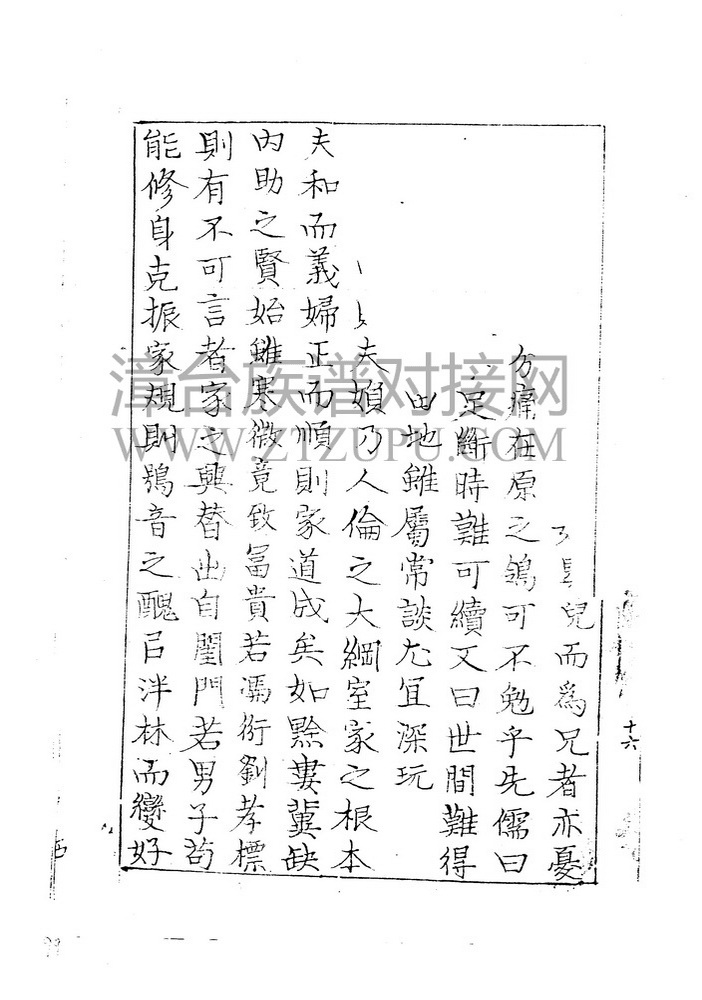 兒而為兄者亦憂
方痛在原之鴒可不勉乎先儒曰
足斷時難可續又曰世間難得
田地雖屬常談尤宜深玩
夫婦乃人倫之大綱室家之根本
夫和而義婦正而順則家道成矣如黔婁冀缺
內助之賢始雖寒微竟致富貴若馮衍劉孝標
則有不可言者家之興替出自閨門若男子苟
能修身克振家規則鴞音之醜㠯泮林而變好
十六
漳台族谱对接网
WWW.ZTZUPU.COM